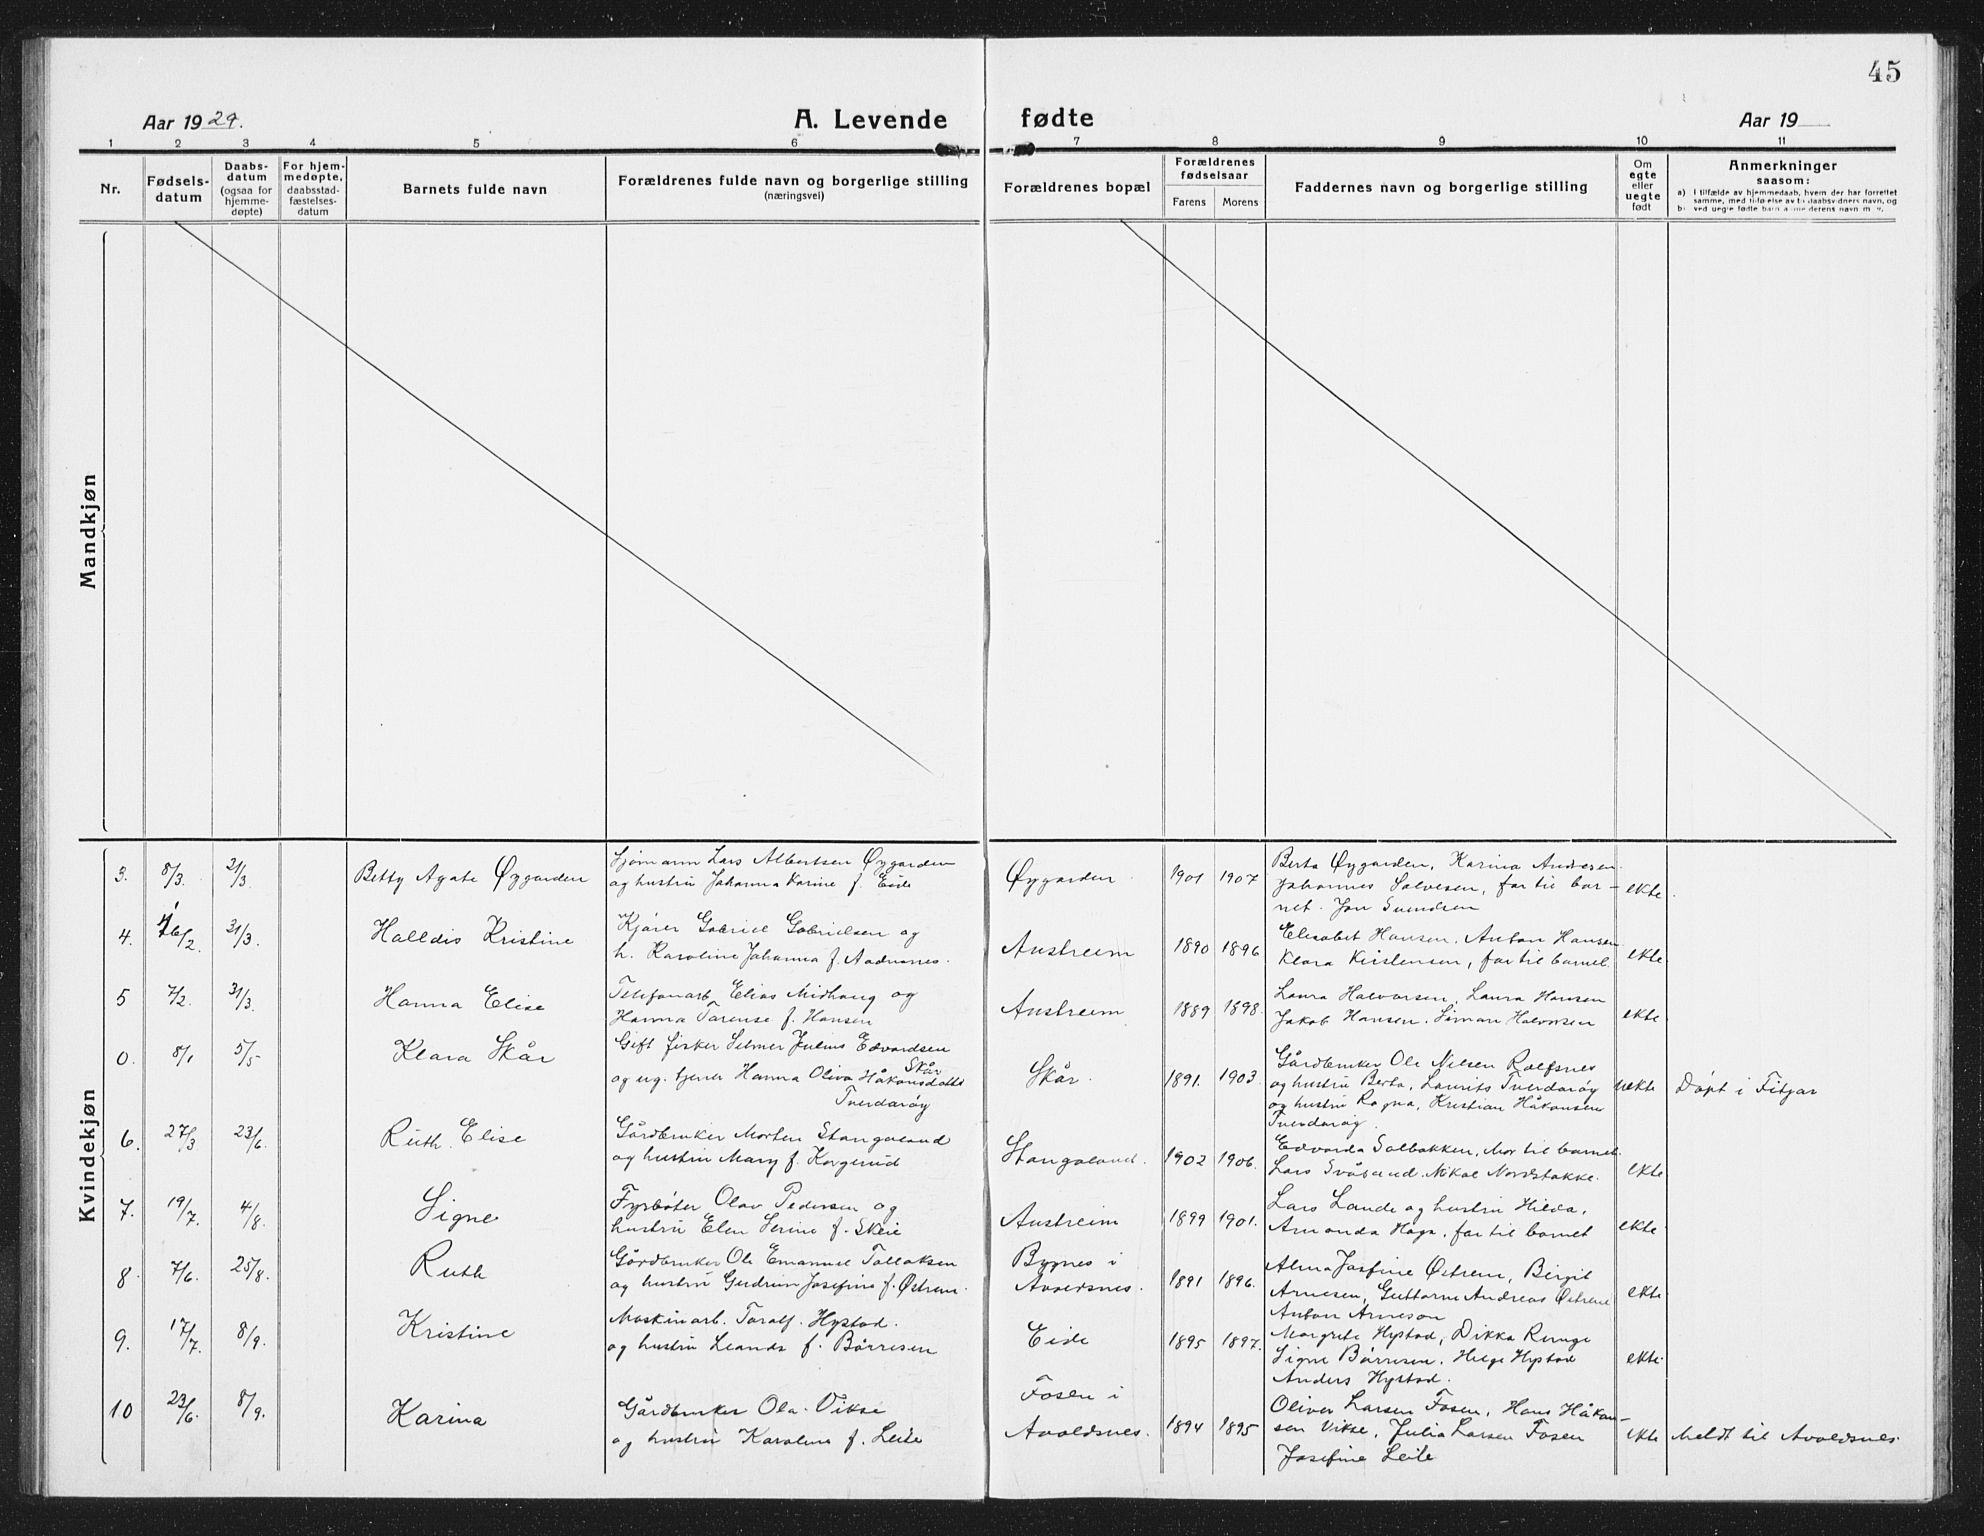 45
Aar 1929.
A. Levende
fødte
Aar 19
1 2 3 4 5 6 7 8 9 10 11
Nr.
Fødsels-
datum
Daabs-
datum
(ogsaa for
hjemme-
døpte)
For hjem-
medøpte,
daabsstad-
fæstelses-
datum
Barnets fulde navn
Forældrenes fulde navn og borgerlige stilling
(næringsvei)
Forældrenes bopæl
Forældrenes
fødselsaar
Farens
Morens
Faddernes navn og borgerlige stilling
Om
egte
eller
uegte
født
Anmerkninger
saasom:
a) I tilfælde av hjemmedaab, hvem der har forrettet
samme, med tilføielse av to daabsvidners navn, og
b) ved uegte fødte barn
Mandkjøn
Kvindekjøn
3. 8/3. 31/3. Betty Agate Øygarden
Sjømann Lars Albertsen Øygarden
og hustru Johanna Karine f. Eide
Øygarden 1901 1907
Berta Øygarden, Karina Andresen
Johannes Salvesen, far til bar-
net. Jon Svendsen
ekte.
4. 16/2. 31/3. Halldis Kristine
Kjører Gabriel Gabrielsen og
h. Karoline Johanna f. Aadnanes.
Austreim 1890 1896
Elisabet Hansen, Anton Hansen
Klara Kirstensen, far til barnet.
ekte
5 7/2. 31/3. Hanna Elise
Telefonarb. Elias Midhaug og
Hanna Tarense f. Hansen
Austreim 1889 1898.
Laura Halvorsen, Laura Hansen
Jakob Hansen. Simon Halvorsen
ekte.
0. 8/1 5/5 Klara Skår
Gift fisker Selmer Julius Edvardsen
Skår
og ug. tjener Hanna Oliva Håkonsdatter
Tverdarøy
Skår. 1891. 1903.
Gårdbruker Ole Nilsen Rolfsnes
og hustru Berta, Laurits Tverdarøy
og hustru Ragna, Kristian Håkonsen
Tverdarøy.
uekte
Døpt i Fitjar
6. 27/3 23/6. Ruth Elise
Gårdbruker Morten Stangaland
og hustru Mary f. Korgerud
Stangaland. 1902 1906.
Edvarda Solbakken, Mor til barnet
Lars Svåsand. Nikal Nordstokke.
ekte
7. 19/7. 4/8. Signe
Fyrbøter Olav Pedersen og
hustru Elen Serine f. Skeie
Austreim 1899 1901.
Lars Lande og hustru Hilda,
Amanda Haga, far til barnet
ekte
8. 7/6. 25/8. Ruth
Gårdbruker Ole Emanuel Tollaksen
og hustru Gudrun Josefine f. Østrem.
Bygnes i
Avaldsnes. 1891 1896.
Alma Josfine Østrem, Birgit
Arnesen, Guttorm Andreas Østrem
Anton Arneson
ekte
9. 17/7. 8/9. Kristine
Maskinarb. Toralf. Hystad.
og hustru Leanda f. Børresen
Eide 1895 1897.
Margrete Hystad, Dikka Runge
Signe Børresen. Helge Hystad
Anders Hystad.
ekte.
10 23/6. 8/9. Karina
Gårdbruker Ola. Vikse
og hustru Karoline f. Leite
Fosen i
Avaldsnes. 1894 1895
Oliver Larsen Fosen, Hans Håkon-
sen Vikse, Julia Larsen Fosen
Josefine Leite
ekte
Meldt til Avaldsnes.